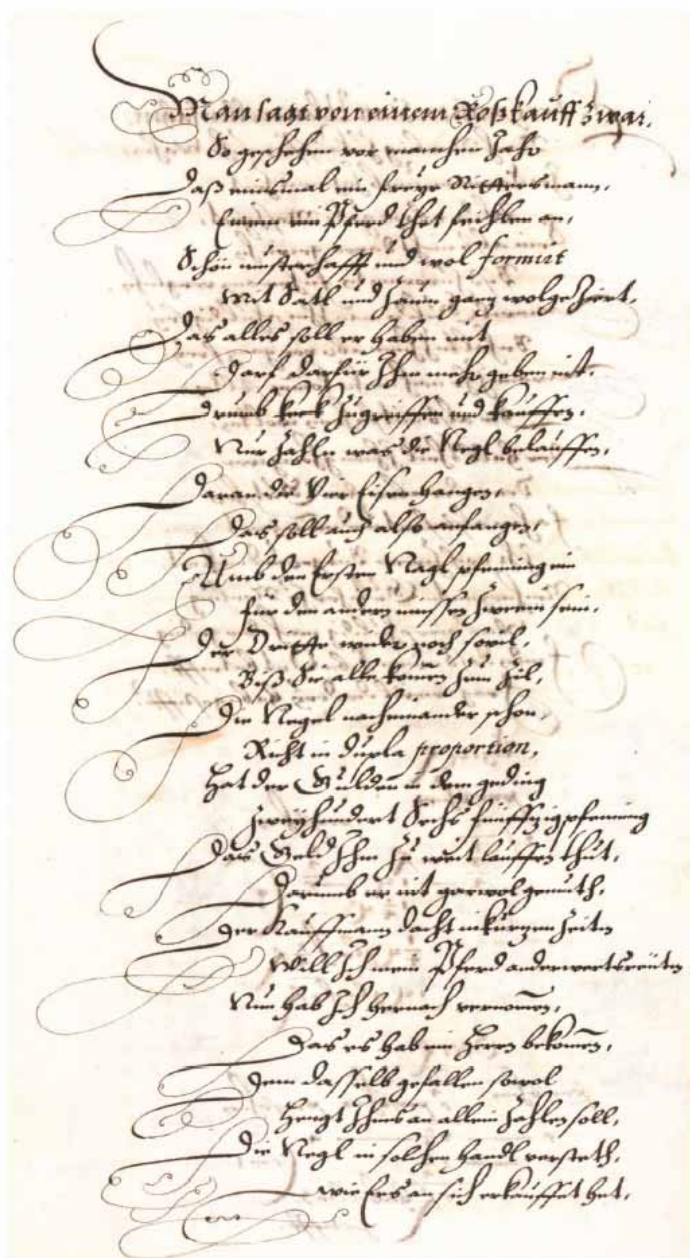 Man sagt von einem Roßkauff zwar,
So geschehen vor manchen Jahr
Daß einsmal ein freyer Rittersmann,
Einem ein Pferd thet feihlen an,
Schön musterhafft und wol formirt
Mit Satl und Zaum gantz wolgeziert,
Das alles soll er haben mit
Darf darfür Ihm mehr geben nit.
Drumb keck zugreiffen und kauffen,
Nur zahln was die Negl belauffen,
Daran die Vier Eisen hangen,
Das soll auch also anfangen,
Umb den Ersten Nagl pfenning ein
für den andern müssen zween sein,
Der Dritte wider noch sovil,
Biß Sie alle kom̄en zum Zil,
Die Negel nacheinander schon,
Richt in dupla proportion,
Hat der Gulden in dem geding
Zweyhundert Sechs fünffzig pfenning
Das Geld Ihm zu weit lauffen thut,
Darumb er nit gar wol gemuth.
Der Kauffmann dacht in kurtzen Zeiten
Will Ich mein Pferd anderwerts reüten
Nun hab Ich hernach vernom̄en,
Das es hab ein Herrn bekom̄en,
Dem dasselb gefallen sowol
Hengt Ihms an allein zahlen soll,
Die Negl in solchen Handl versteth,
wie Ers an sich erkauffet het,